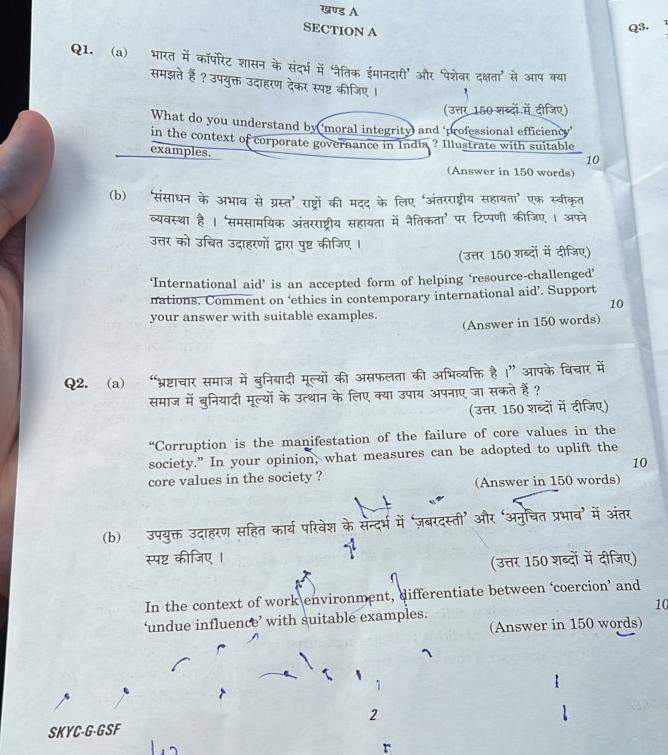 खण्ड A
SECTION A
Q3.
Q1. (a) भारत में कॉर्पोरेट शासन के संदर्भ में 'नैतिक ईमानदारी' और 'पेशेवर दक्षता' से आप क्या
समझते हैं ? उपयुक्त उदाहरण देकर स्पष्ट कीजिए ।
(उत्तर 150 शब्दों में दीजिए)
What do you understand by 'moral integrity' and 'professional efficiency'
in the context of corporate governance in India ? Illustrate with suitable
examples.
(Answer in 150 words) 10
(b) 'संसाधन के अभाव से ग्रस्त' राष्ट्रों की मदद के लिए 'अंतरराष्ट्रीय सहायता' एक स्वीकृत
व्यवस्था है । 'समसामयिक अंतरराष्ट्रीय सहायता में नैतिकता' पर टिप्पणी कीजिए । अपने
उत्तर को उचित उदाहरणों द्वारा पुष्ट कीजिए ।
(उत्तर 150 शब्दों में दीजिए)
'International aid' is an accepted form of helping 'resource-challenged'
nations. Comment on 'ethics in contemporary international aid'. Support
your answer with suitable examples.
(Answer in 150 words) 10
Q2. (a) "भ्रष्टाचार समाज में बुनियादी मूल्यों की असफलता की अभिव्यक्ति है ।" आपके विचार में
समाज में बुनियादी मूल्यों के उत्थान के लिए क्या उपाय अपनाए जा सकते हैं ?
(उत्तर 150 शब्दों में दीजिए)
"Corruption is the manifestation of the failure of core values in the
society." In your opinion, what measures can be adopted to uplift the
core values in the society ?
(Answer in 150 words) 10
(b) उपयुक्त उदाहरण सहित कार्य परिवेश के सन्दर्भ में 'ज़बरदस्ती' और 'अनुचित प्रभाव' में अंतर
स्पष्ट कीजिए ।
(उत्तर 150 शब्दों में दीजिए)
In the context of work environment, differentiate between 'coercion' and
'undue influence' with suitable examples.
(Answer in 150 words) 10
SKYC-G-GSF
2